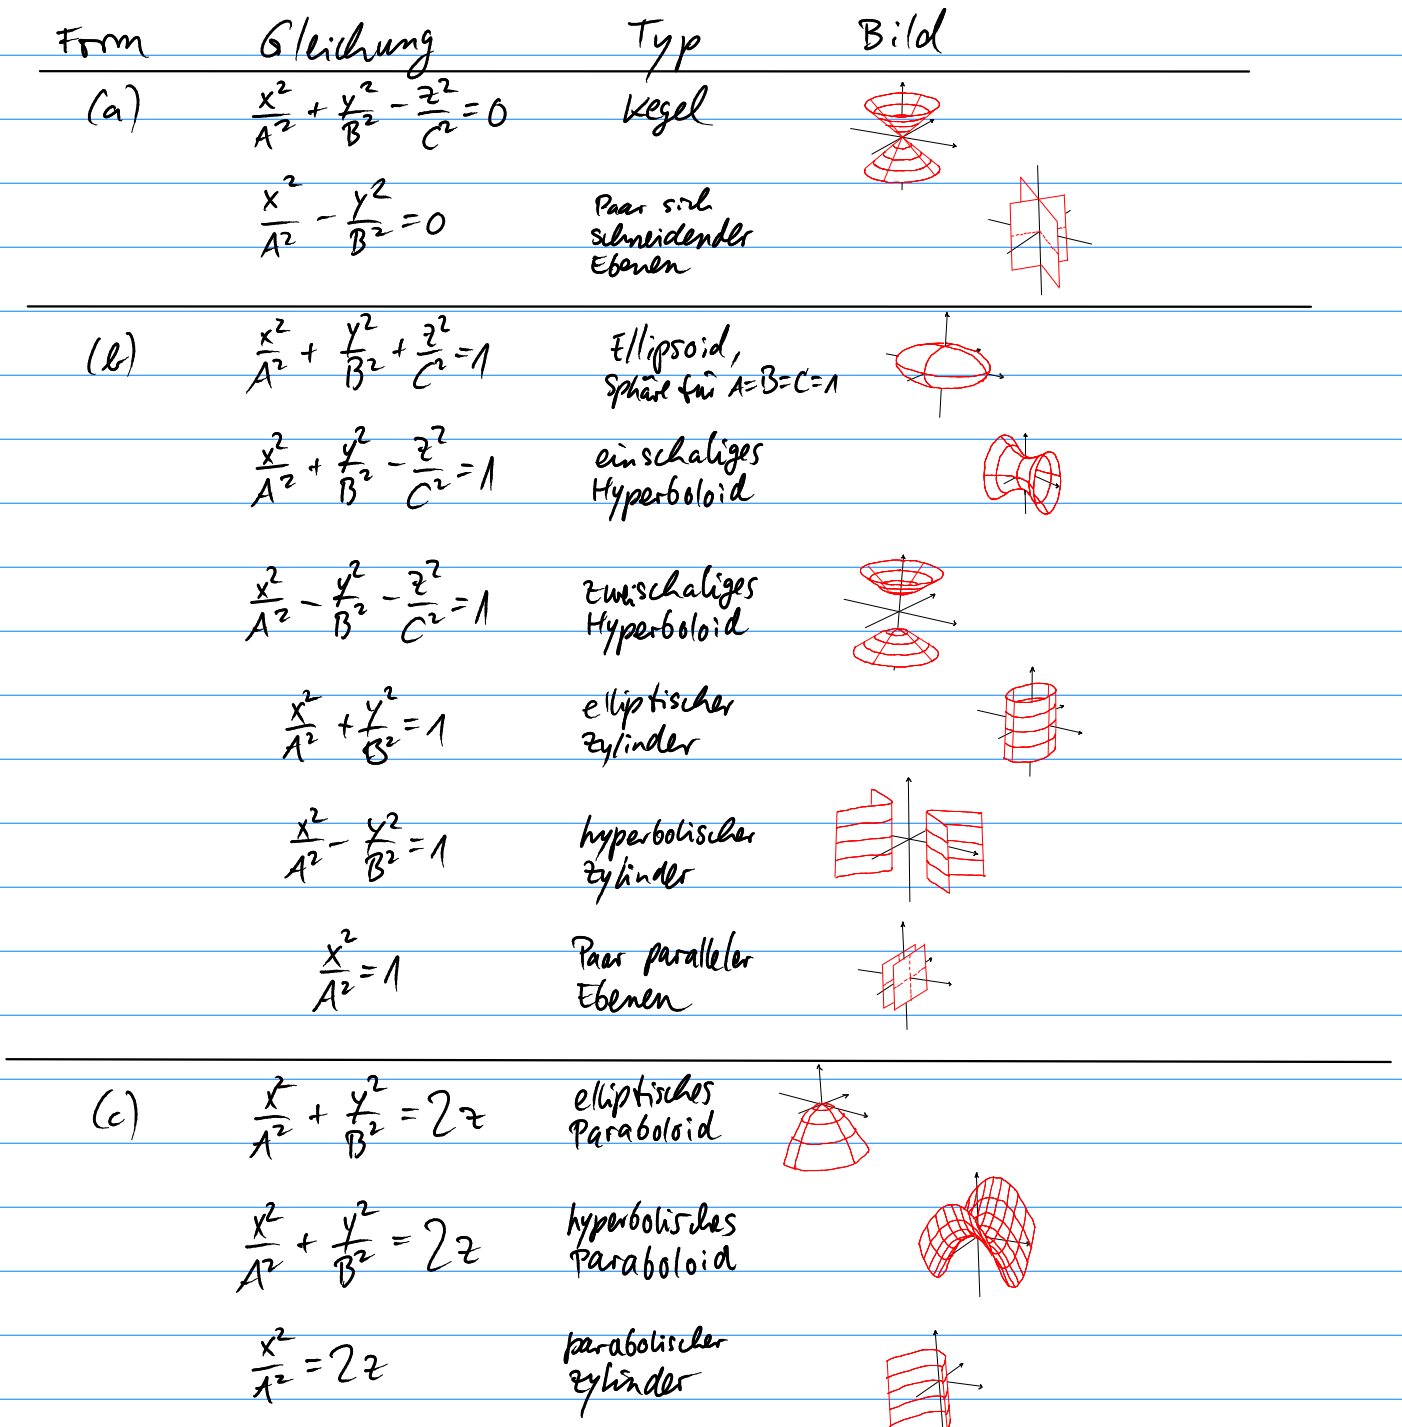 Form Gleichung Typ Bild
(a) x²/A² + y²/B² - z²/C² = 0 Kegel
x²/A² - y²/B² = 0 Paar sich
schneidender
Ebenen
(b) x²/A² + y²/B² + z²/C² = 1 Ellipsoid,
Sphäre für A=B=C=1
x²/A² + y²/B² - z²/C² = 1 einschaliges
Hyperboloid
x²/A² - y²/B² - z²/C² = 1 zweischaliges
Hyperboloid
x²/A² + y²/B² = 1 elliptischer
Zylinder
x²/A² - y²/B² = 1 hyperbolischer
Zylinder
x²/A² = 1 Paar paralleler
Ebenen
(c) x²/A² + y²/B² = 2z elliptisches
Paraboloid
x²/A² + y²/B² = 2z hyperbolisches
Paraboloid
x²/A² = 2z parabolischer
Zylinder